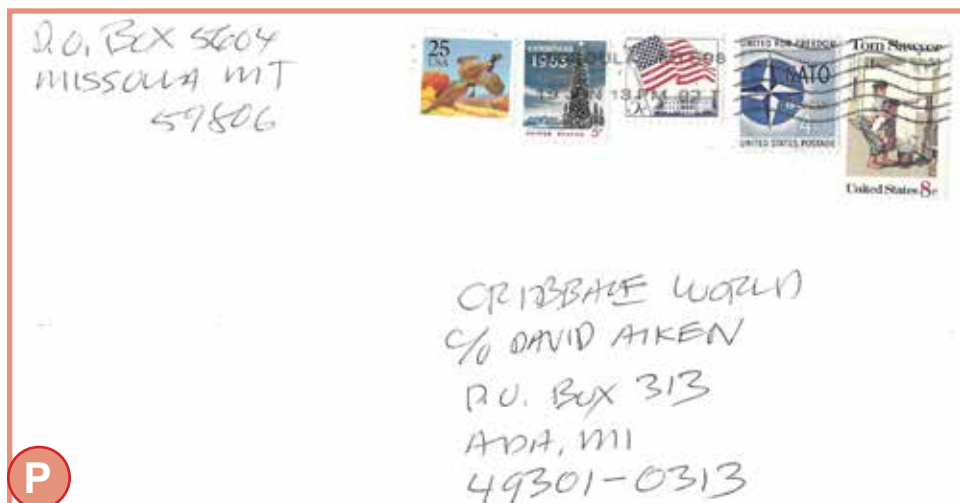 P.O. BOX 5604
MISSOULA MT
59806
25
USA
CHRISTMAS
1963
UNITED STATES 5c
UNITED FOR FREEDOM
NATO
UNITED STATES POSTAGE
Tom Sawyer
United States 8c
CRIBBAGE WORLD
C/O DAVID AIKEN
P.O. BOX 313
ADA, MI
49301-0313
P